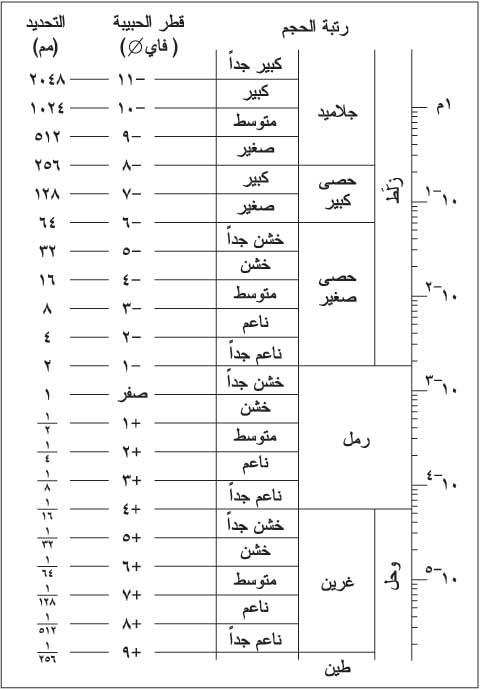 رتبة الحجم
قطر الحبيبة
(فاي Ø)
التحديد
(مم)
كبير جداً
-١١ ٢٠٤٨
كبير
١م
-١٠ ١٠٢٤
جلاميد
متوسط
-٩ ٥١٢
صغير
-٨ ٢٥٦
كبير
زلَط
حصى
كبير
١٠-١
-٧ ١٢٨
صغير
-٦ ٦٤
خشن جداً
-٥ ٣٢
خشن
حصى
صغير
-٤ ١٦
١٠-٢
متوسط
-٣ ٨
ناعم
-٢ ٤
ناعم جداً
-١ ٢
خشن جداً
١٠-٣
صفر ١
خشن
+١ ١/٢
رمل
متوسط
+٢ ١/٤
ناعم
+٣ ١/٨
١٠-٤
ناعم جداً
+٤ ١/١٦
خشن جداً
+٥ ١/٣٢
خشن
+٦ ١/٦٤
وحل
غرين
متوسط
١٠-٥
+٧ ١/١٢٨
ناعم
+٨ ١/٥١٢
ناعم جداً
+٩ ١/٢٥٦
طين